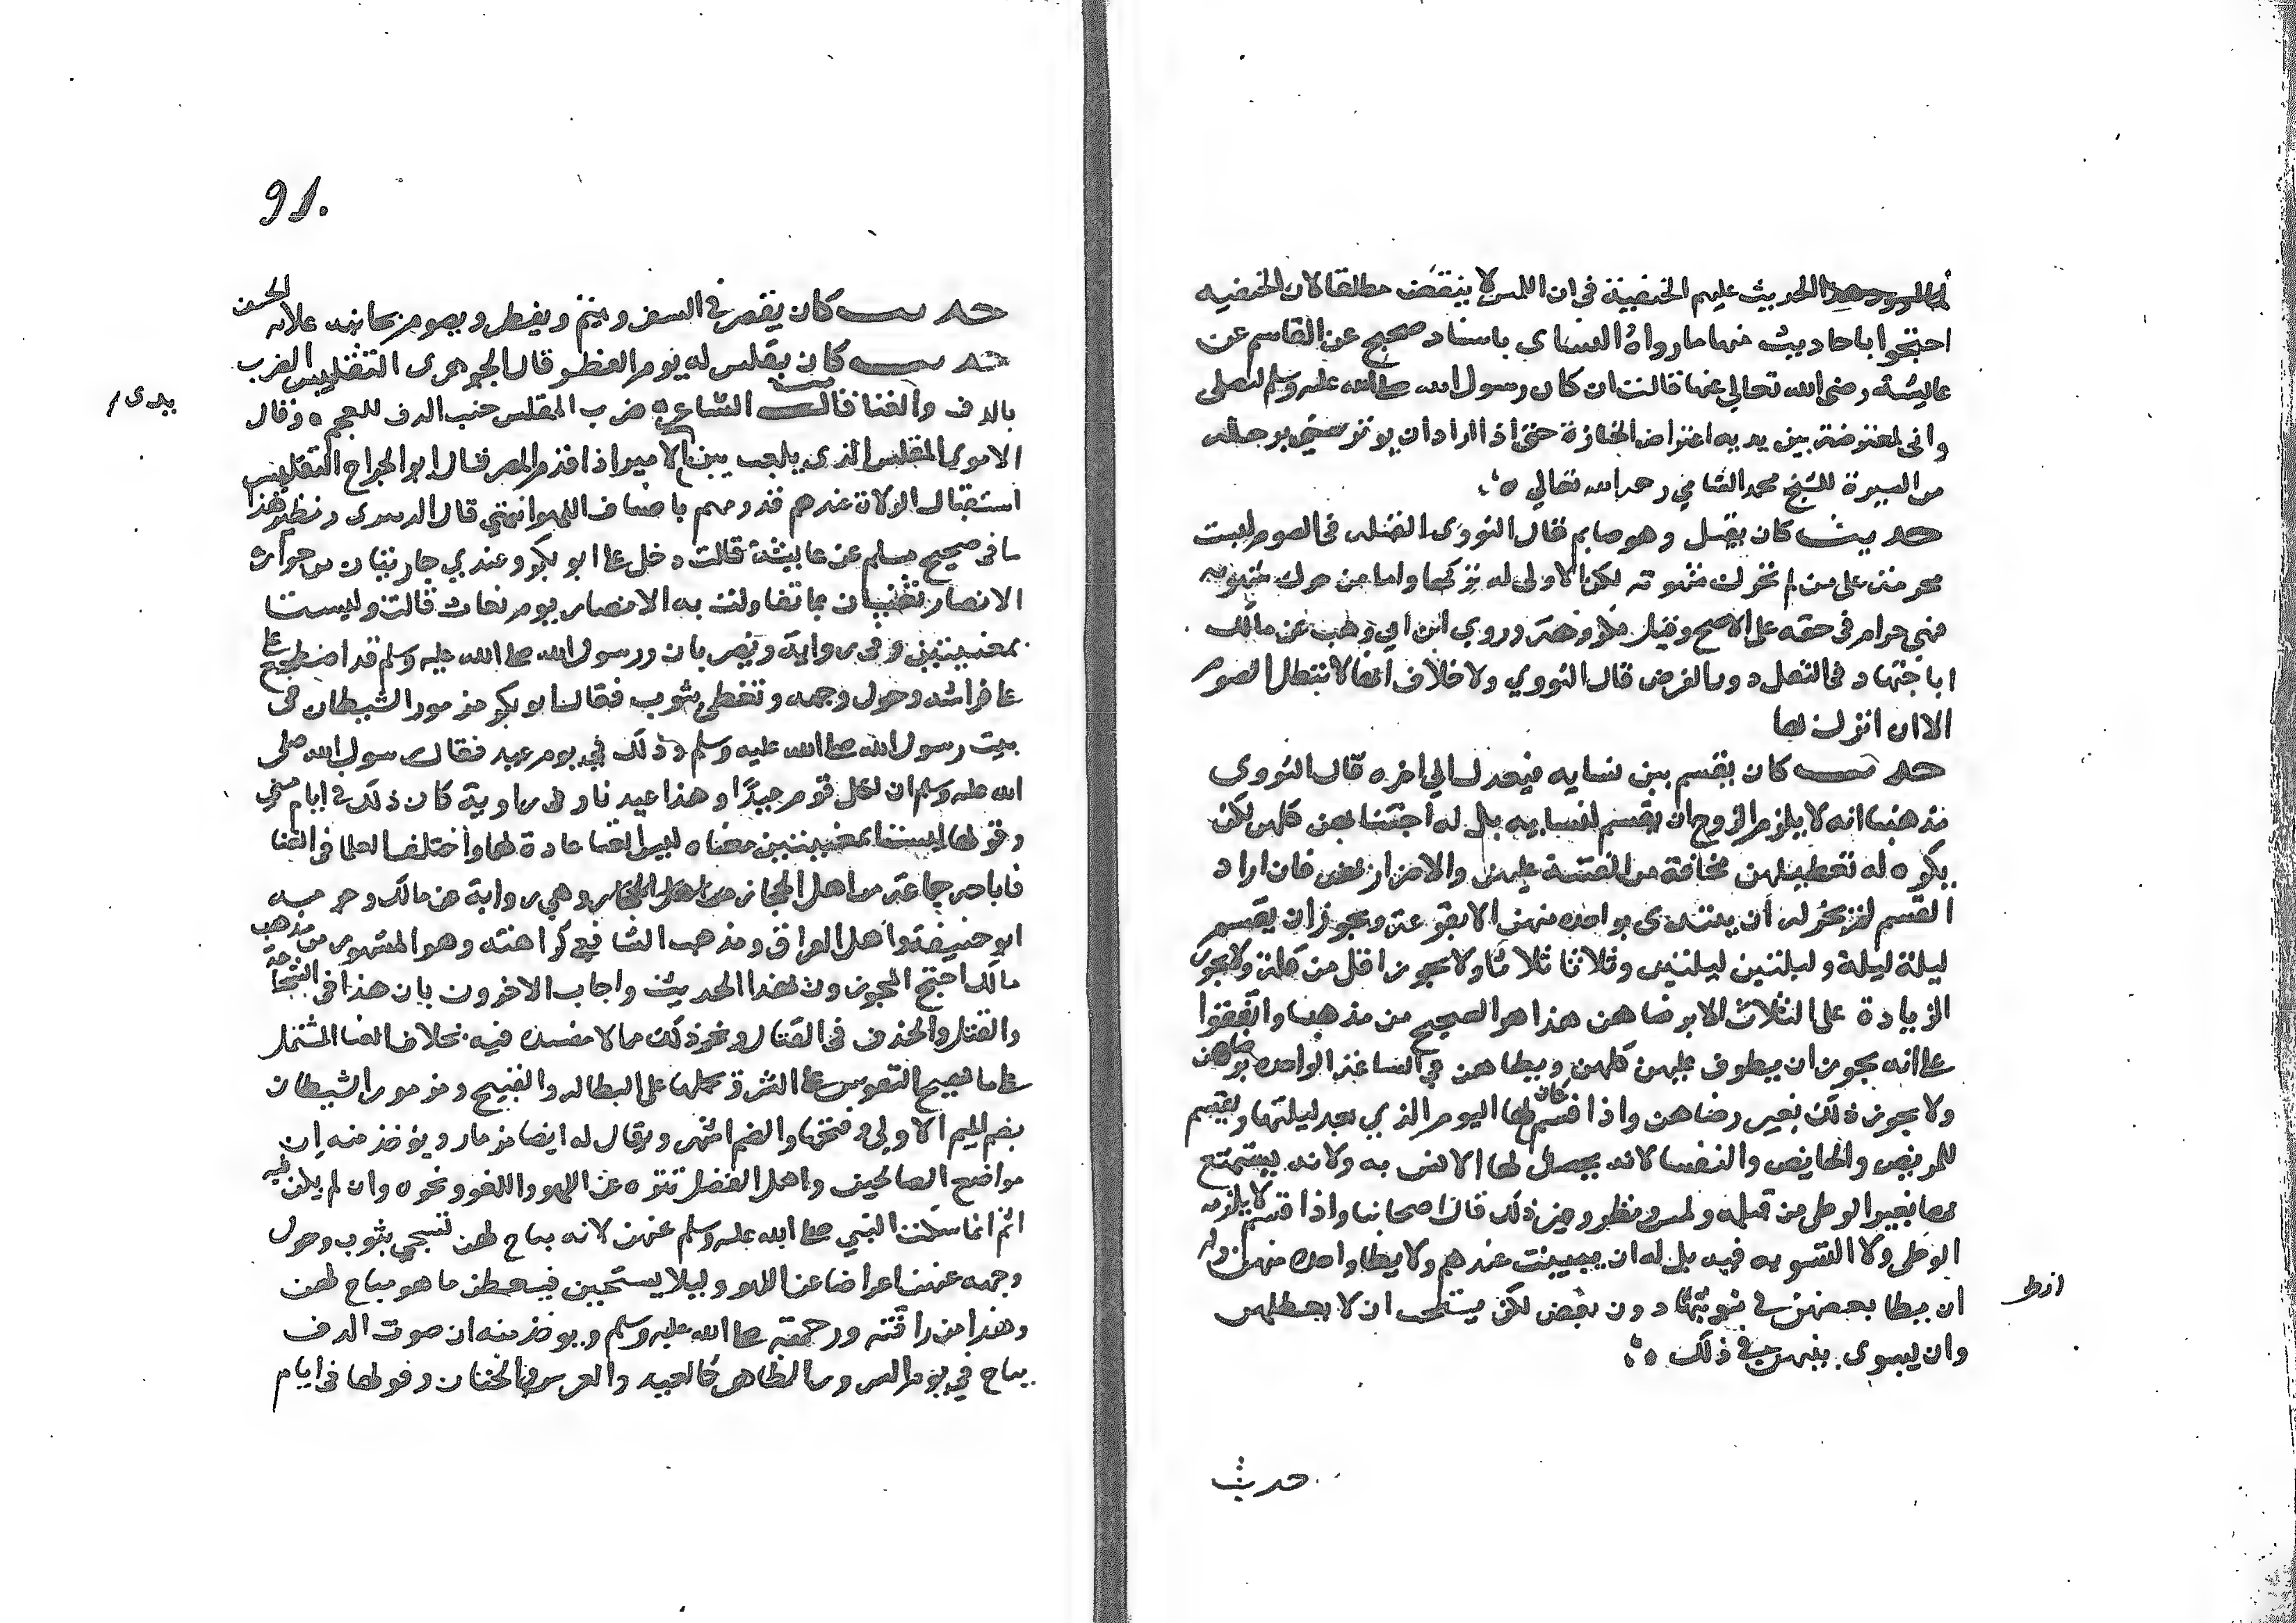 الحديث عليهم الحنفية في ان اللمس لا ينقض مطلقا لان الحنفيه
احتجوا باحاديث منها ما رواه النساى باسناد صحيح عن القاسم عن
عايشة رضى الله تعالى عنها قالت ان كان رسول الله صلى الله عليه وسلم ليصلى
وانى لمعترضة بين يديه اعتراض الجنازة حتى اذا اراد ان يوتر مسنى برجله
من السيرة للشيخ محمد الشامي رحمه الله تعالي
حديث كان يقبل وهو صايم قال النووى القبله فى الصوم ليست
محرمة على من لم تحرك شهوته لكن الاولى له تركها واما من حركت شهوته
فهي حرام فى حقه على الاصح وقيل مكروهة وروي ابن وهب عن مالك
اباحتها فى النفل دون الفرض قال النووي ولا خلاف انها لا تبطل الصوم
الا ان انزل بها
حديث كان يقسم بين نسايه فيعدل الي اخره قال النووى
مذهبنا انه لا يلزم الزوج ان يقسم لنسايه بل له اجتنابهن كلهن لكن
يكره له تعطيلهن مخافة من الفتنة عليهن والاضرار بهن فان اراد
القسم لم يجز له ان يبتدى بواحدة منهن الا بقرعة ويجوز ان يقسم
ليلة ليلة وليلتين ليلتين وثلاثا ثلاثا ولا يجوز اقل من ليلة ولا يجوز
الزيادة على الثلاث الا برضاهن هذا هو الصحيح من مذهبنا واتفقوا
على انه يجوز ان يطوف عليهن كلهن ويطاهن في الساعة الواحدة برضاهن
ولا يجوز ذلك بغير رضاهن واذا قسم كان لها اليوم الذي بعد ليلتها ويقسم
للمريض والحايض والنفسا لانه يحصل لها الانس به ولانه يستمتع
بها بغير الوطى من قبلة ولمس ونظر وغير ذلك قال اصحابنا واذا قسم لا يلزمه
الوطى ولا التسويه فيه بل له ان يبيت عندهن ولا يطا واحدة منهن وله
ان يطا بعضهن في نوبتها دون بعض لكن يستحب ان لا يعطلهن
وان يسوى بينهن في ذلك
حديث
91
حديث كان يقصر فى السفر ويتم ويفطر ويصوم
حديث كان يقلس له يوم الفطر قال الجوهرى التقليس الضرب
بالدف والغنا قال الشاعر ضرب المقلس جنب الدف للعجم وقال
الاموى المقلس الذى يلعب بين يدى الامير اذا قدم المصر قال ابو الجراح التقليس
استقبال الولاة عند قدومهم باصناف اللهو انتهي قال ونظير هذا
ما فى صحيح مسلم عن عايشة قالت دخل على ابو بكر وعندي جاريتان من جوارى
الانصار تغنيان بما تقاولت به الانصار يوم بعاث قالت وليستا
بمغنيتين وفى رواية وتضربان ورسول الله صلى الله عليه وسلم قد اضطجع
على فراشه وحول وجهه وتغطى بثوب فقال ابو بكر مزمور الشيطان فى
بيت رسول الله صلى الله عليه وسلم وذلك في يوم عيد فقال رسول الله صلى
الله عليه وسلم ان لكل قوم عيدا وهذا عيدنا وفى رواية كان ذلك فى ايام منى
وقولها ليستا بمغنيتين معناه ليس الغنا عادة لهما واختلف العلما فى الغنا
فاباحه جماعة من اهل الحجاز وهي رواية عن مالك وحرمه
ابو حنيفة واهل العراق ومذهب الشافعي كراهته وهو المشهور من مذهب
مالك احتج المجوزون بهذا الحديث واجاب الاخرون بان هذا فى الشجاعة
والقتل والحذق فى القتال ونحو ذلك مما لا مفسدة فيه بخلاف الغنا المشتمل
على ما يهيج النفوس على الشر ويحملها على البطالة والقبيح ومزمور الشيطان
بضم الميم الاولى وفتحها والضم اشهر ويقال له ايضا مزمار ويوخذ منه ان
مواضع الصالحين واهل الفضل تنزه عن اللهو واللغو ونحوه وان لم يكن فيه
اثم انما سكت النبي صلى الله عليه وسلم عنهن لانه مباح لهن تسجى بثوب وحول
وجهه عنهن اعراضا عن اللهو وليلا يستحيين فيقطعن ما هو مباح لهن
وهذا من رافته ورحمته صلى الله عليه وسلم ويوخذ منه ان صوت الدف
يباح في يوم السرور الظاهر كالعيد والعرس والختان وقولها فى ايام